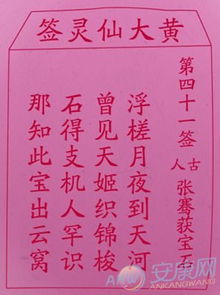 黄大仙灵签
第四十一签
古人
张骞获宝石
浮槎月夜到天河
曾见天姬织锦梭
石得支机人罕识
那知此宝出云窝
安康网
ANKANGWANG